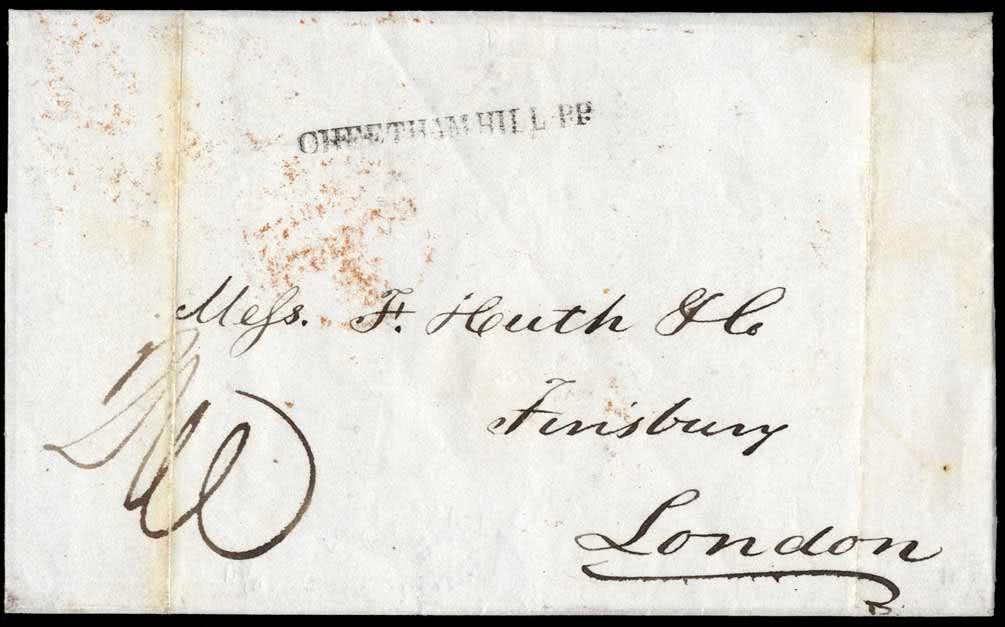 CHEETHAM HILL P.P.
Mess. F. Huth & Co
Finsbury
London